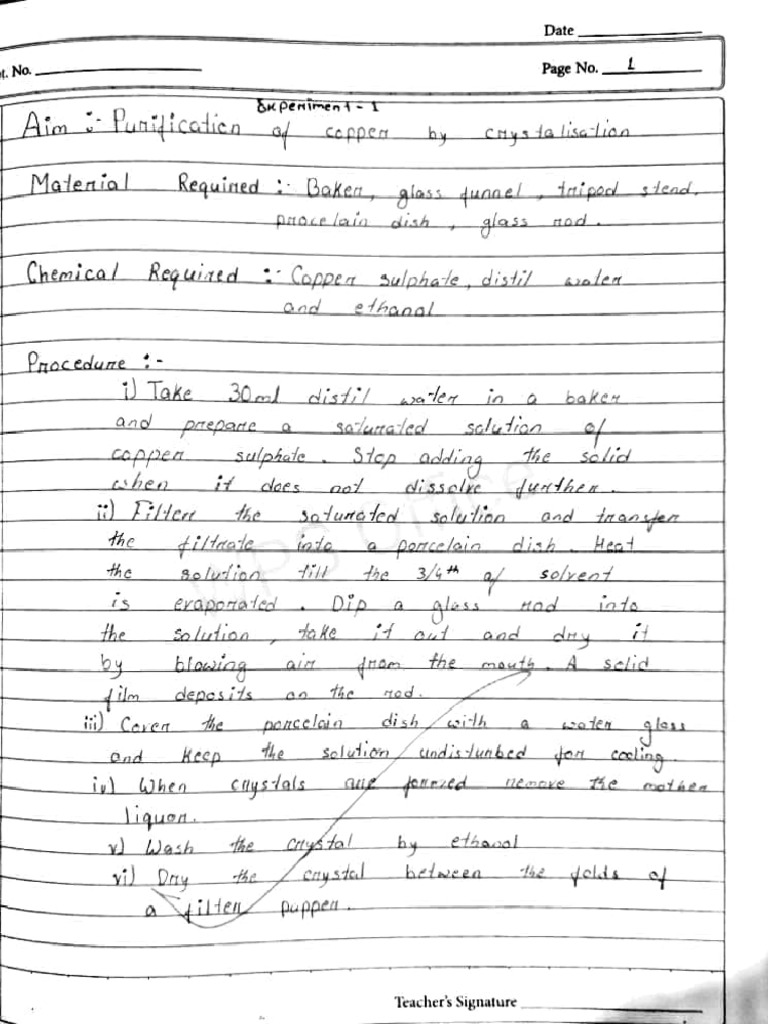 Date
t. No.
Page No. 1
Experiment - 1
Aim :- Purification of copper by crystalisation
Material Required :- Baker, glass funnel, tripod stend,
procelain dish, glass rod.
Chemical Required :- Copper sulphate, distil water
and ethanal
Procedure :-
i) Take 30ml distil water in a baker
and prepare a saturated solution of
copper sulphate. Stop adding the solid
when it does not dissolve further.
ii) Filter the saturated solution and transfer
the filtrate into a porcelain dish. Heat
the solution till the 3/4th of solvent
is evaporated. Dip a glass rod into
the solution, take it out and dry it
by blowing air from the mouth. A solid
film deposits on the rod.
iii) Cover the porcelain dish with a water glass
and keep the solution undisturbed for cooling.
iv) When crystals are formed remove the mother
liquor.
v) Wash the crystal by ethanol
vi) Dry the crystal between the folds of
a filter pupper.
WPS Office
Teacher's Signature